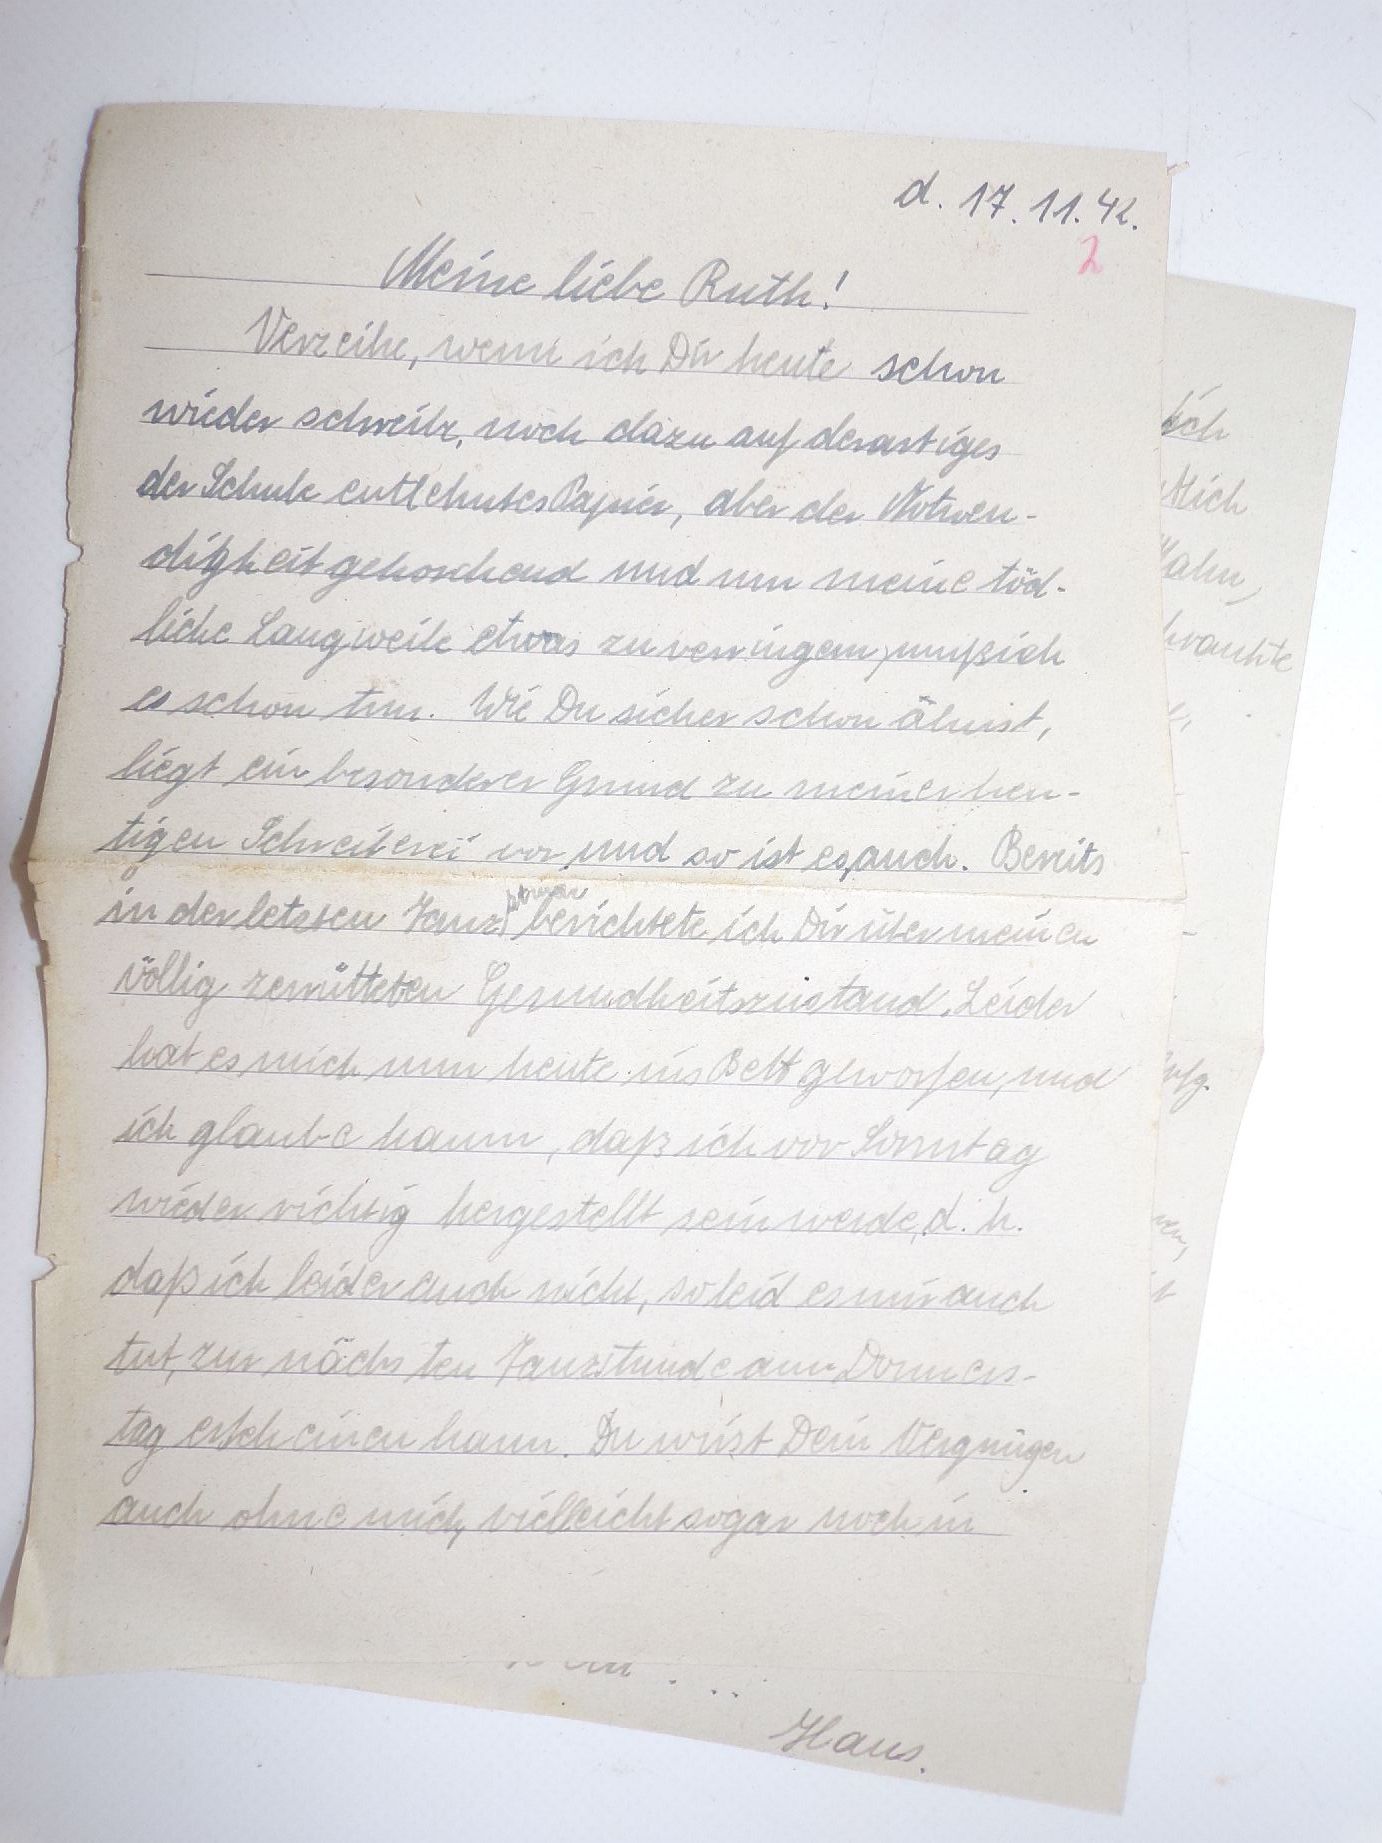 d. 17.11.42.
2
Meine liebe Ruth!
Verzeihe, wenn ich Dir heute schon
wieder schreibe, noch dazu auf derartiges
der Schule entlehntes Papier, aber der Notwen-
digkeit gehorchend und um meine töd-
liche Langweile etwas zu verringern, muß ich
es schon tun. Wie Du sicher schon ahnst,
liegt ein besonderer Grund zu meiner heu-
tigen Schreiberei vor und so ist es, auch. Bereits
in der letzten Tanzstunde berichtete ich Dir über meinen
völlig zerrütteten Gesundheitszustand. Leider
hat es mich nun heute ins Bett geworfen, und
ich glaube kaum, daß ich vor Sonntag
wieder richtig hergestellt sein werde, d. h.
daß ich leider auch nicht, so leid es mir auch
tut, zur nächsten Tanzstunde am Donners-
tag erscheinen kann. Du wirst Dein Vergnügen
auch ohne mich, vielleicht sogar noch in
ich
tlich
Hahn,
brauchte
Hans.